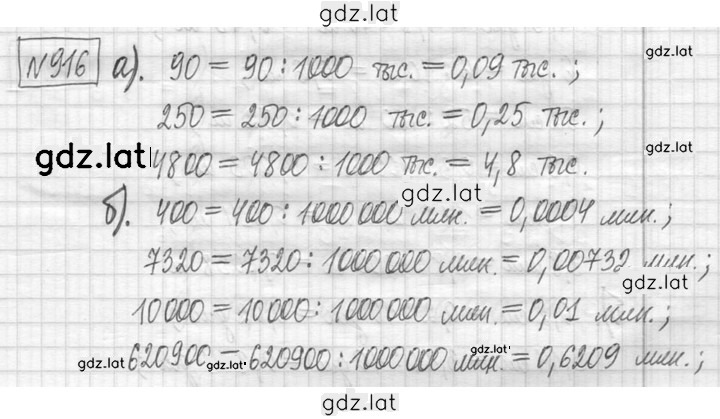 gdz.lat
№916 а). 90 = 90 : 1000 тыс. = 0,09 тыс. ;
gdz.lat
250 = 250 : 1000 тыс. = 0,25 тыс. ;
gdz.lat
gdz.lat
4800 = 4800 : 1000 тыс. = 4,8 тыс.
gdz.lat
б). 400 = 400 : 1000 000 млн. = 0,0004 млн. ;
7320 = 7320 : 1000 000 млн. = 0,00732 млн. ;
gdz.lat
10 000 = 10 000 : 1000 000 млн. = 0,01 млн. ;
gdz.lat 620900 = 620900 : 1000 000 млн. = 0,6209 млн. ;
gdz.lat
gdz.lat
gdz.lat